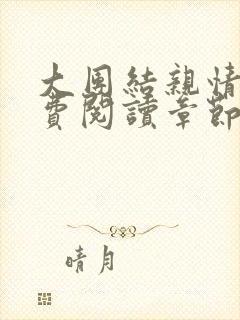 大団結親情
費閱讀章節
晴月